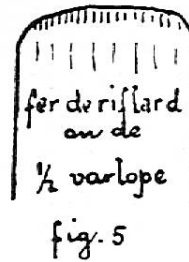 fer de riflard
ou de
1/2 varlope
fig. 5